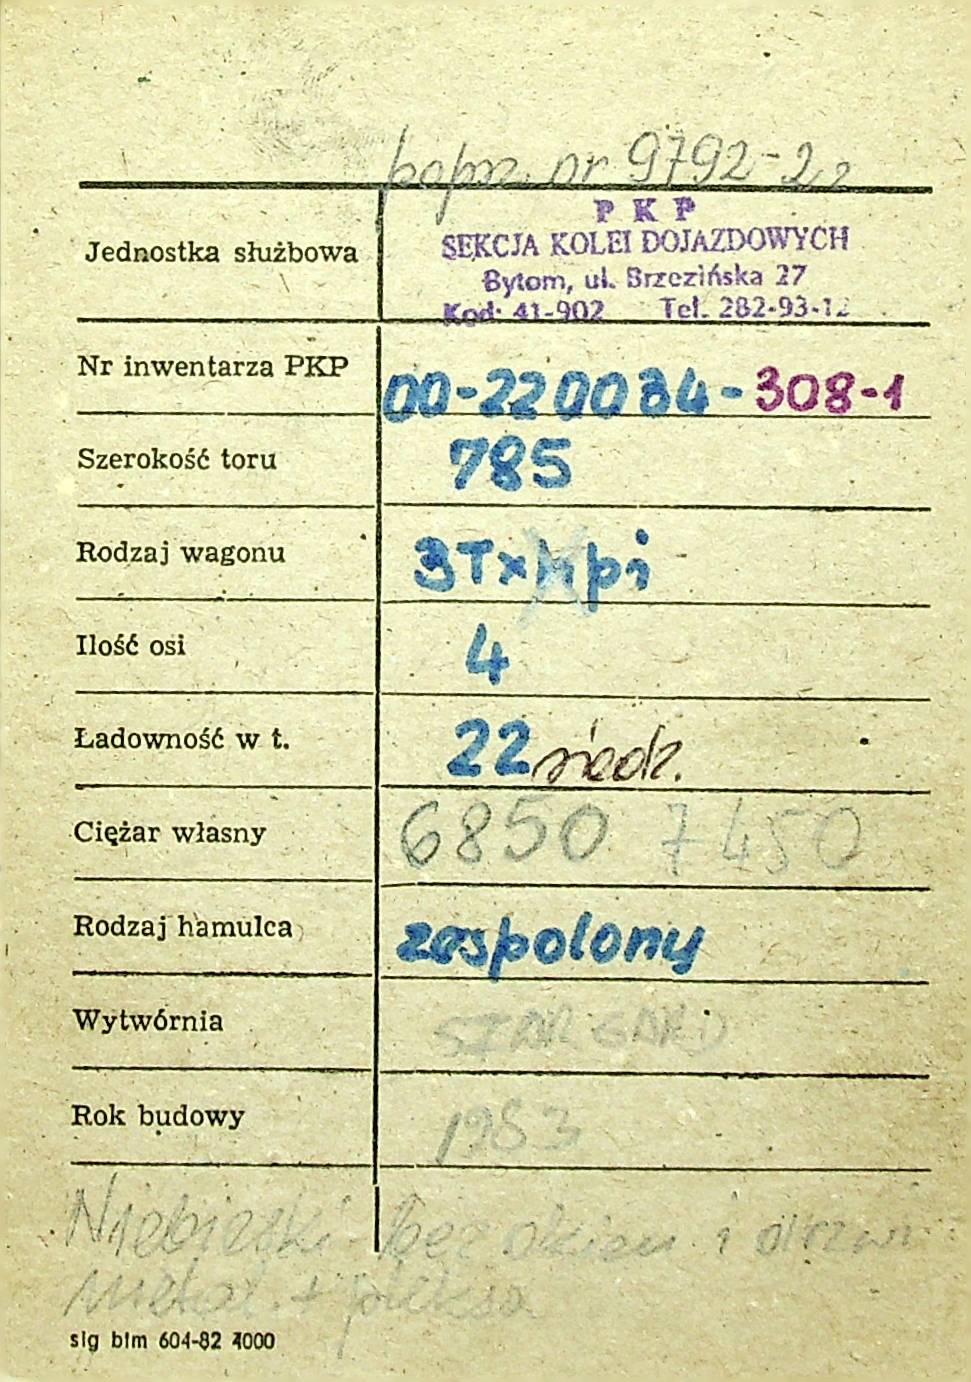 poprz. nr 9792-2
Jednostka służbowa
PKP
SEKCJA KOLEI DOJAZDOWYCH
Bytom, ul. Brzezińska 27
Kod: 41-902 Tel. 282-93-12
Nr inwentarza PKP 00-220084-308-1
Szerokość toru 785
Rodzaj wagonu 3Txhpi
Ilość osi 4
Ładowność w t. 22 siedz.
Ciężar własny 6850 7450
Rodzaj hamulca zespolony
Wytwórnia STARGARD
Rok budowy 1983
Niebieski - bez okien i drzwi
metal. + pleksa
sig btm 604-82 4000